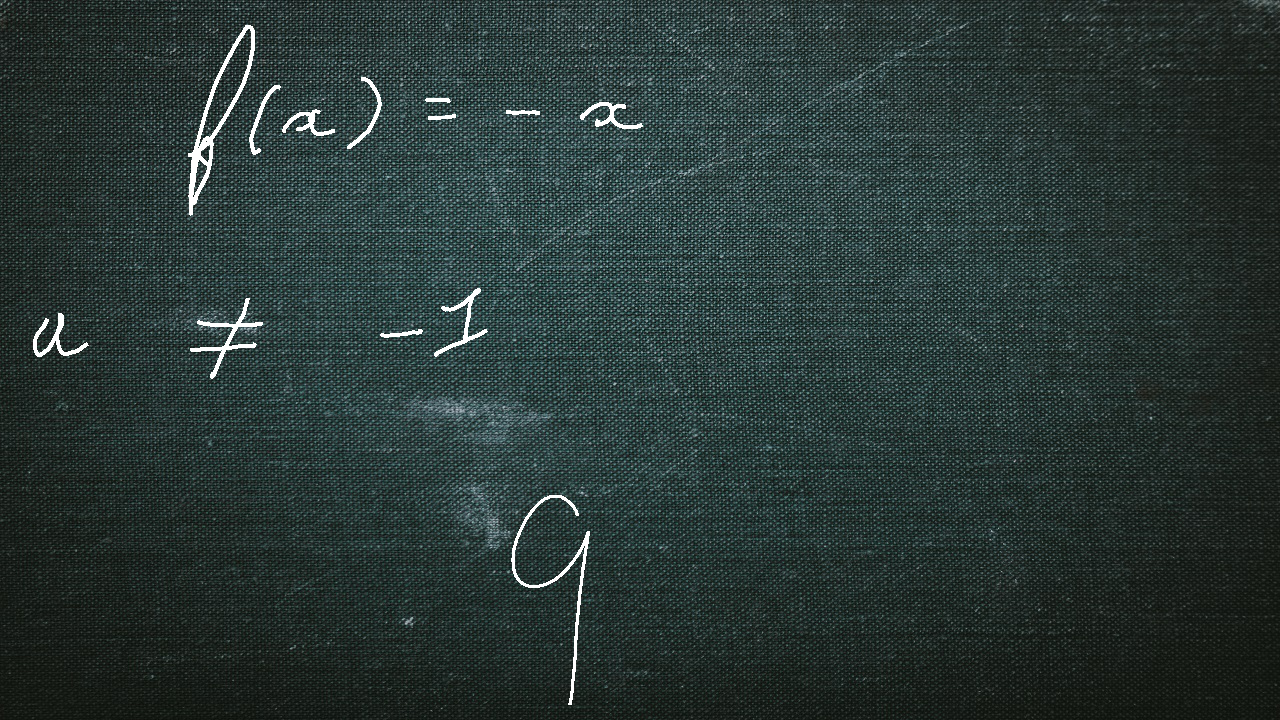 f(x) = - x
a ≠ -1
9